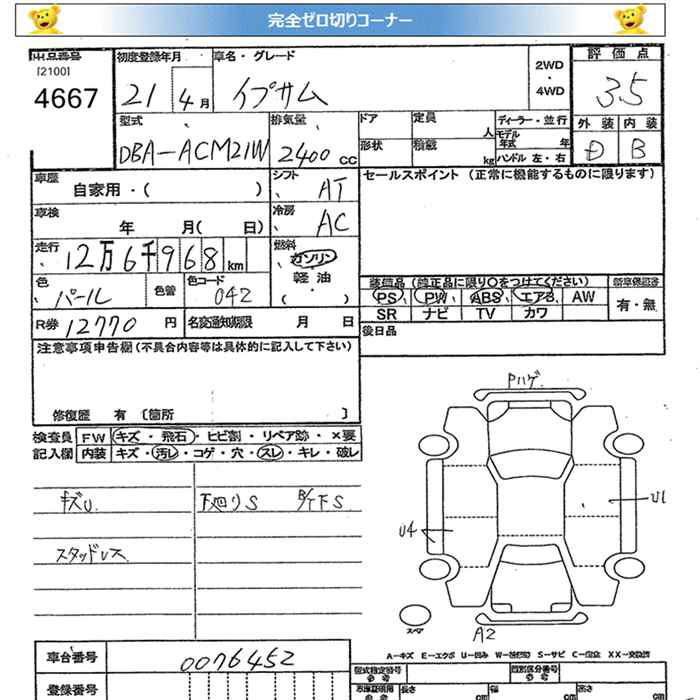 完全ゼロ切りコーナー
出品番号
[2100]
4667
初度登録年月
21 4月
車名・グレード
イプサム
2WD
・
4WD
評価点
3.5
外装 内装
D B
型式
DBA-ACM21W
排気量
2400 CC
ドア
形状
定員
人
積載
kg
ディーラー・並行
モデル
年式 年
ハンドル 左・右
車歴
自家用・( )
シフト
AT
セールスポイント (正常に機能するものに限ります)
車検
年 月( 日)
冷房
AC
走行
12万6千968km
燃料
ガソリン
軽油
・( )
色
パール
色替
色コード
042
装備品 (純正品に限り○をつけてください)
PS PW ABS エアB AW
SR ナビ TV カワ
新車保証書
有・無
R券 12770 円
名変通知期限 月 日
後日品
注意事項申告欄(不具合内容等は具体的に記入して下さい)
修復歴 有 〔箇所 〕
検査員
記入欄
FW キズ・飛石・ヒビ割・リペア跡・×要
内装 キズ・汚レ・コゲ・穴・スレ・キレ・破レ
キズU.
下廻りS
スタッドレス
Pハゲ
U1
U4
スペア
A2
A-キズ E-エクボ U-凹み W-補修跡 S-サビ C-腐食 XX-交換済
車台番号
0076452
登録番号
型式指定番号
参考
類別区分番号
参考
車庫証明用
参考
長さ cm
幅 cm
高さ cm